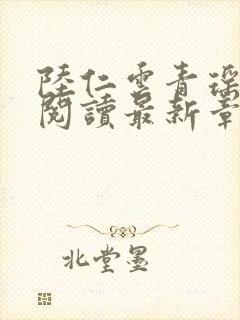 陸仁雲青瑤
閱讀最新章
北堂墨